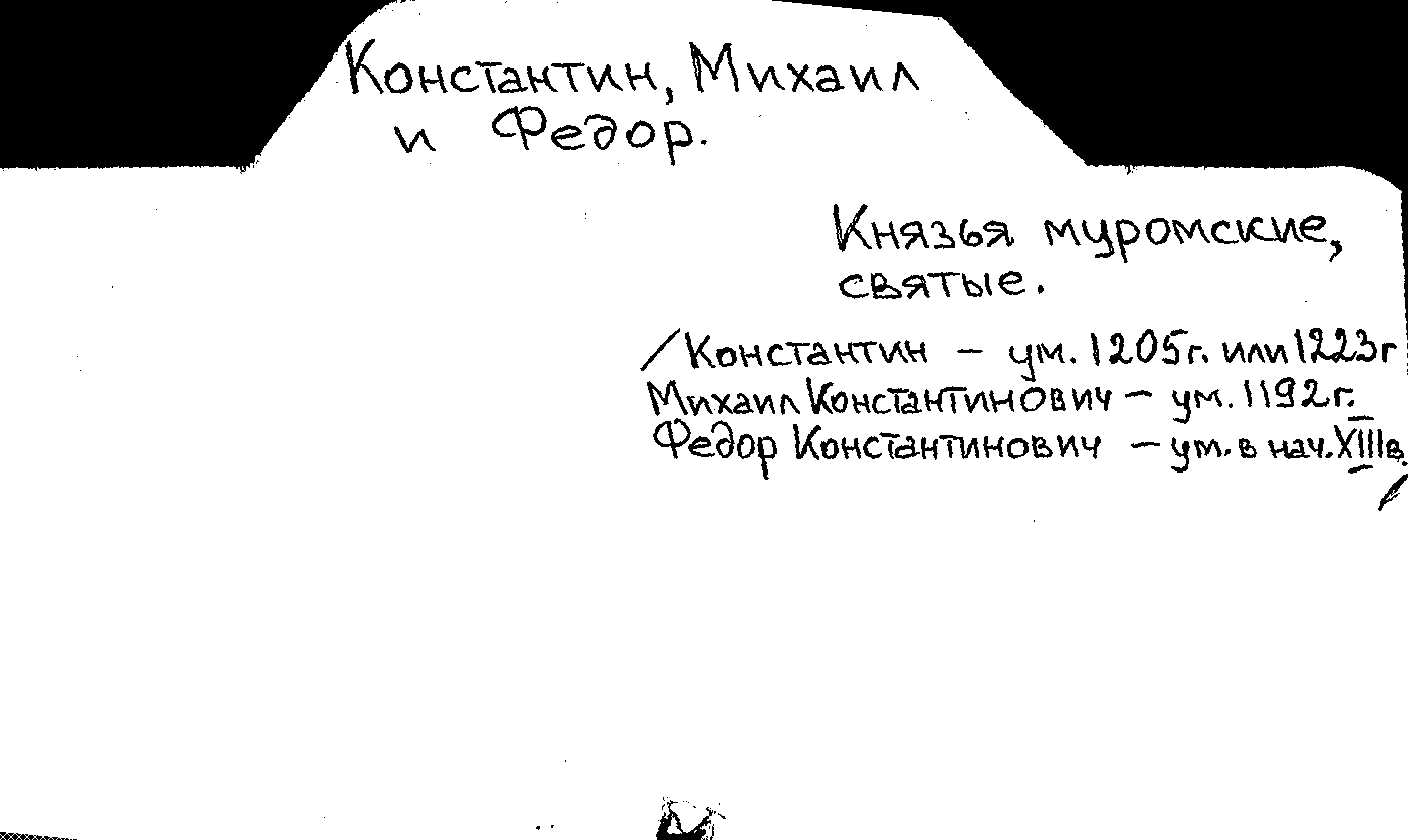 Константин, Михаил
и Федор.
Князья муромские,
святые.
/Константин – ум. 1205г. или 1223г
Михаил Константинович – ум. 1192г.
Федор Константинович – ум. в нач. XIIIв.
/